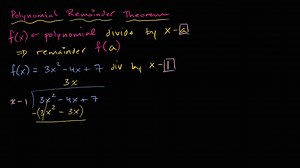 Polynomial Remainder Theorem
f(x) ← polynomial divide by x-a
⇒ remainder f(a)
f(x) = 3x² - 4x + 7 div by x - 1
3x
x - 1 3x² - 4x + 7
-(3x² - 3x)